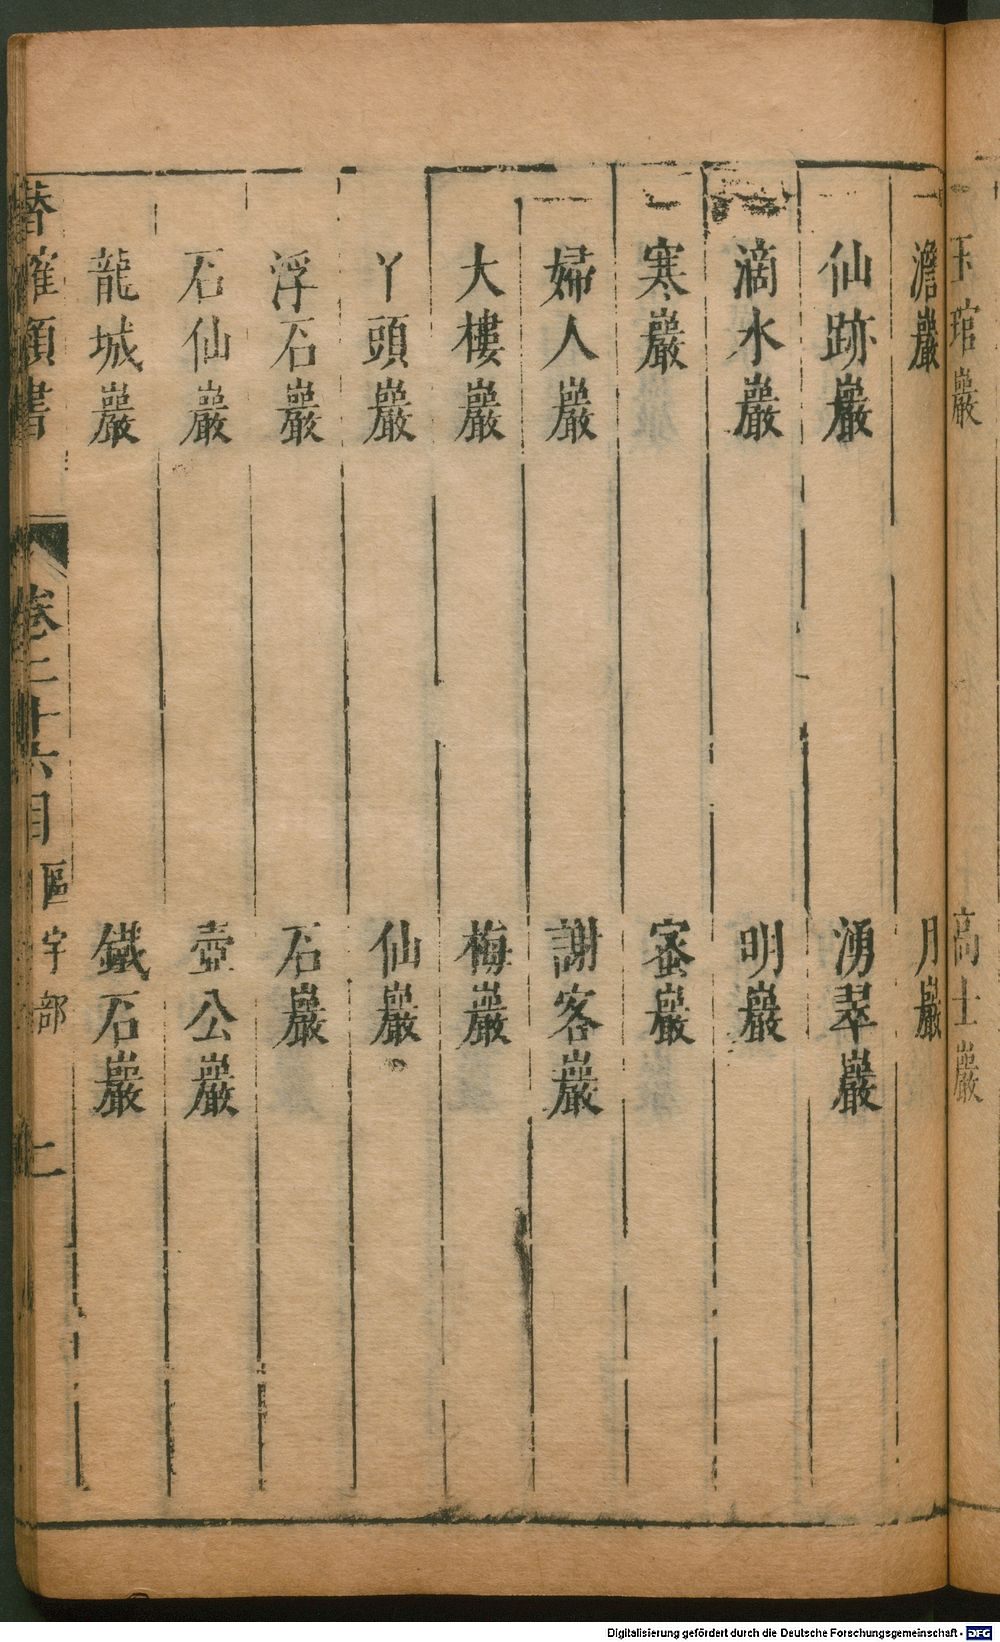 玉琯巖
高士巖
澹巖
月巖
仙跡巖
湧翠巖
滴水巖
明巖
寒巖
蜜巖
婦人巖
謝客巖
大樓巖
梅巖
丫頭巖
仙巖
浮石巖
石巖
石仙巖
壺公巖
龍城巖
鐵石巖
類書
卷二十六目
區宇部
二
Digitalisierung gefördert durch die Deutsche Forschungsgemeinschaft - DFG